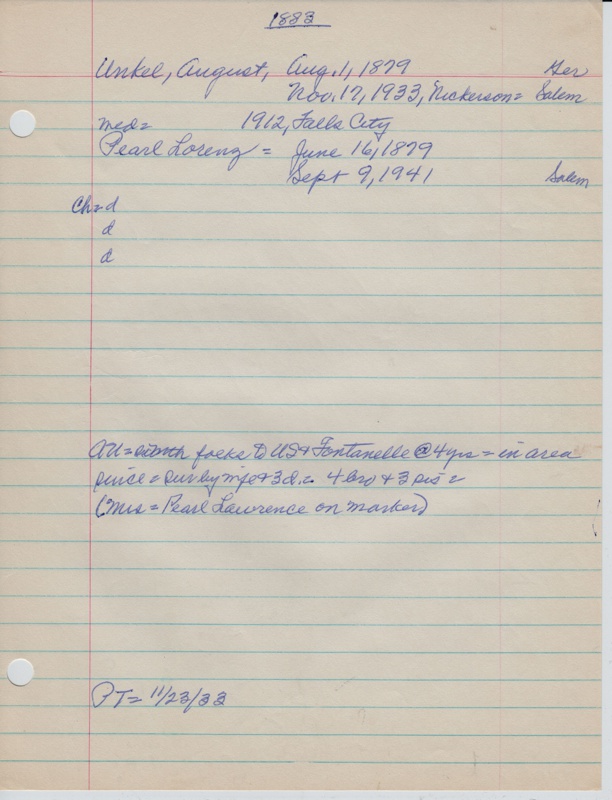 1883
Unkel, August, Aug. 1, 1879 Ger
Nov. 17, 1933, Nickerson = Salem
med = 1912, Falls City
Pearl Lorenz = June 16, 1879
Sept 9, 1941 Salem
Ch = d
d
d
AU = with focks to US & Fontanelle @ 4 yrs = in area
since = sur by wife & 3 d. = 4 bro & 3 sis =
(Mrs = Pearl Lawrence on marker)
PT = 11/23/33